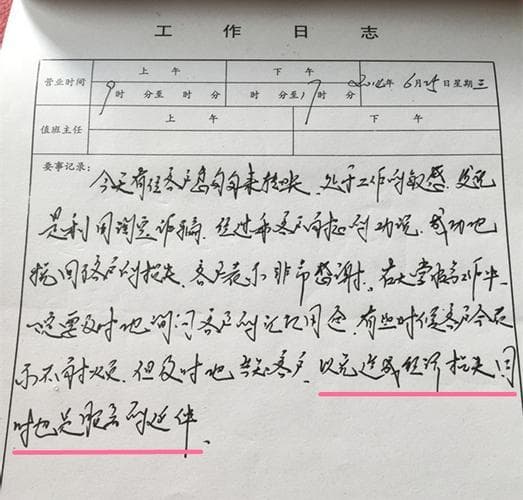 工 作 日 志
营业时间 上 午 下 午 2014年 6月25日星期三
9时 分至 时 分 时 分至 时 分
值班主任 上 午 下 午
要事记录:
今天有位客户匆匆来转账.处于工作的敏感.发现
是利用淘宝诈骗.经过和客户耐心的劝说.成功地
挽回了客户的损失.客户表示非常感谢.在大堂服务工作中.
一定要及时地询问客户的汇款用途.有些时候客户会表
示不耐烦.但及时地告知客户.以免造成经济损失同
时也是服务的延伸.